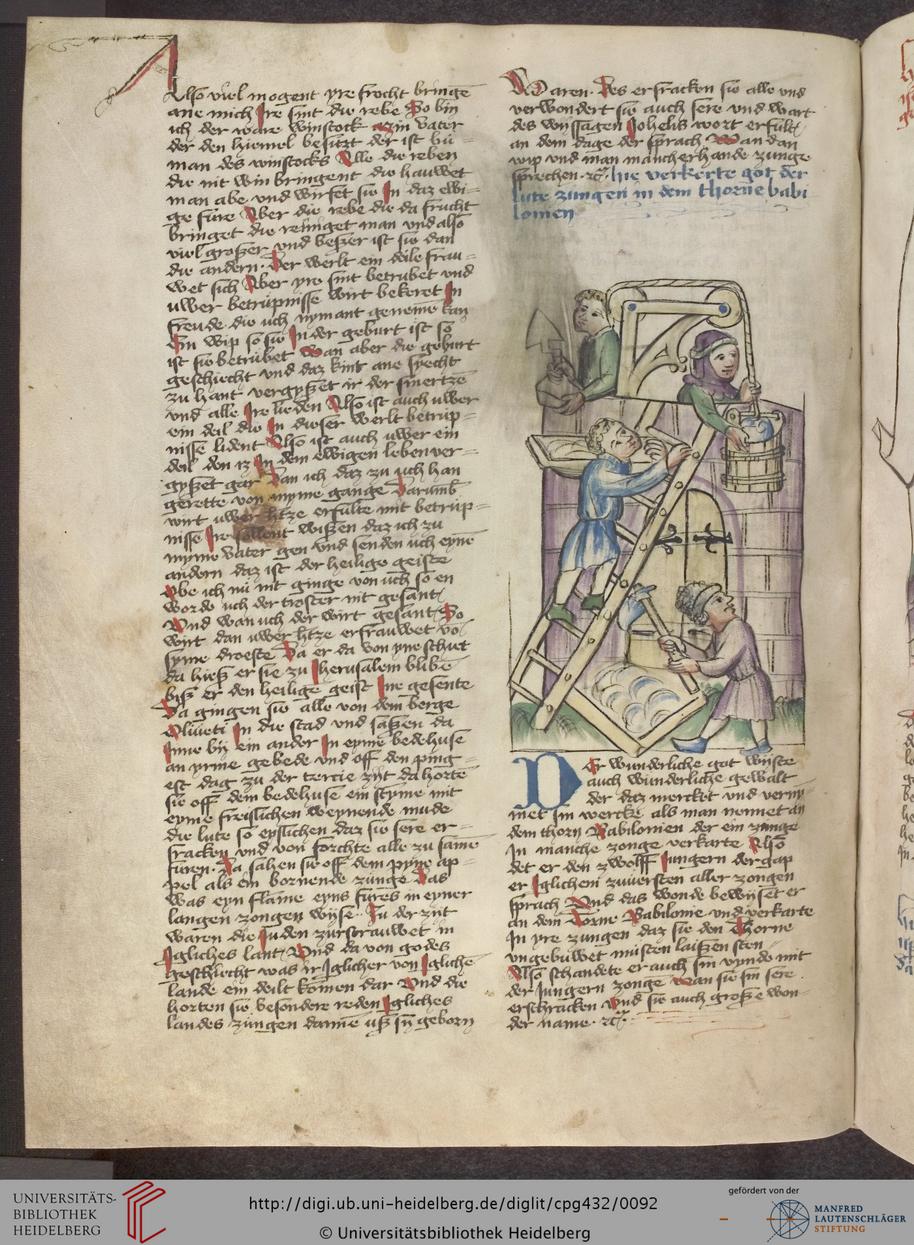 Also viel mogent yre frocht bringe
ane mich Ire sint die rebe So bin
ich der ware winstock myn vater
der den hiemel besitzt der ist bu-
man des winstocks Alle die reben
die nit win bringent die hauwet
man abe vnd wirfet sie In daz ewi-
ge fure Aber die rebe die da frucht
bringet die reiniget man vnd also
viel großer vnd beßer ist sie dan
die andern. Der werlt ein deile frau-
wet sich Aber yre sint betrubet vnd
uwer betrupnisse wirt bekeret In
freude die uch nymant geneme kan
Ein wip so sie In der geburt ist so
ist sie betrubet Wan aber die geburt
geschiecht vnd daz kint ane siecht
zu hant vergyßet ir der smertze
vnd alle Ire lieden Also ist auch uwer
ein deil die In dieser werlt betrup-
nisse lident Also ist auch uwer ein
deil den In dem ewigen leben ver-
gyßet gar Wan ich daz zu uch han
gerette von myme gange Darumb
wirt uwer hertze erfulte mit betrup-
nisse Ire sollent wißen daz ich zu
myme vater gen vnd senden uch eyne
andern daz ist der heilige geiste
Obe ich nu nit ginge von uch so en
wordo uch der troster nit gesant
Vnd wan uch der wirt gesant So
wirt dan uwer hertze erfrauwet vo
syme droeste Da er da von yne schiet
da hieß er sie zu Iherusalem blibe
biß er den heilige geist Ine gesente
Da gingen sie alle von dem berge
Oliueti In die stad vnd saßen da
Inne by ein ander In eyme bedehuse
an yrme gebede vnd off den ping-
est dag zu der tercie zijt da horte
sie off dem bedehuse ein styme mit
eyme freislichen weynende mude
die lute so eyslichen daz sie sere er-
fracken vnd von forchte alle zu same
furen. Da sahen sie off dem pyne ap-
pel als ein bornende zunge Das
was eyn flame eyns fures in eyner
langen zongen wyse. Zu der zijt
waren die Juden zurstrauwet in
Igliches lant Vnd da von godes
geschlecht was ir Iglicher von Igliche
lande ein deilt komen dar Vnd die
horten sie besondere reden Igliches
landes zungen danne uß sy geborn
Waren. Des erfracken sie alle vnd
verwondert sie auch sere vnd wart
des wyssagen Johelis wort erfult
an dem dage der sprach Wan dan
wip vnd man mancherhande zunge
sprechen. rc. hie verkerte got der
lute zungen in dem thorne babi
lonien
Der wunderliche got wyste
auch wunderliche gewalt
der daz mercket vnd verny
met sin wercke als man nennet an
dem thorn Babilonien der ein zunge
In manche zonge verkarte Also
det er den zwolff Jungern der gap
er Iglichem zuuersten aller zongen
sprach Vnd das wonde bewyset er
an dem Torne Babilonie vnd verkarte
In yre zungen daz sie den Thorne
vngebuwet musten laißen sten
Also schandete er auch sin vynde mit
der Jungern zonge Wan sie sin sere
erschracken Vnd sie auch große won-
der name. rc.
UNIVERSITÄTS-
BIBLIOTHEK
HEIDELBERG
http://digi.ub.uni-heidelberg.de/diglit/cpg432/0092
© Universitätsbibliothek Heidelberg
gefördert von der
MANFRED
LAUTENSCHLÄGER
STIFTUNG